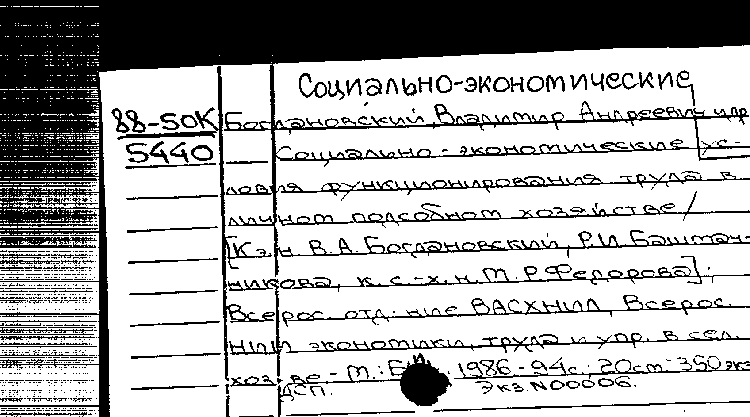 Социально-экономические
88-50К Богдановский, Владимир Андреевич и др
5440 Социально-экономические ус-
ловия функционирования труда в
личном подсобном хозяйстве /
[К.э.н. В.А. Богдановский, Р.И. Баштан-
никова, к.с.-х.н. М.Р. Федорова];
Всерос. отд-ние ВАСХНИЛ, Всерос.
НИИ экономики, труда и упр. в сел.
хоз-ве - М.: 1986 - 94с.; 20см - 350 экз
ДСП. Экз. N00006.